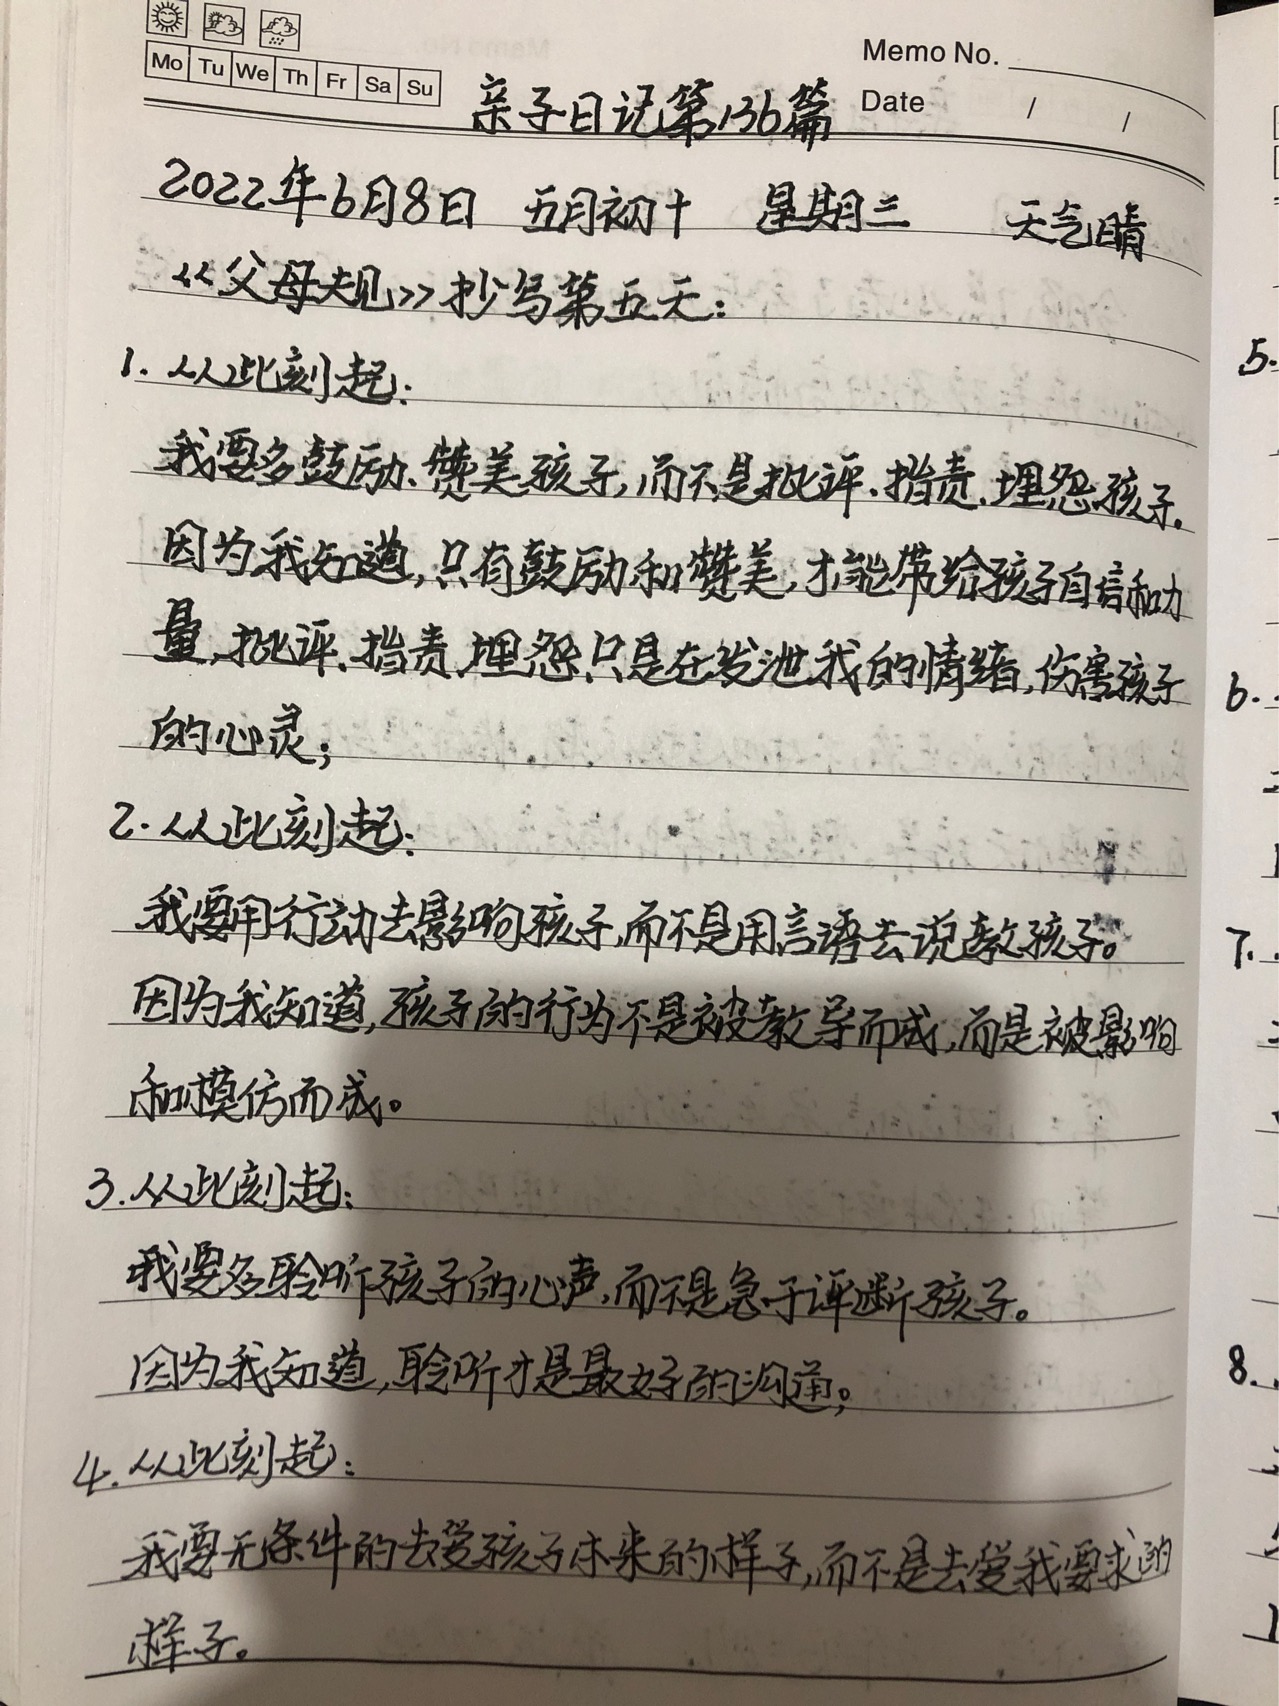 Mo Tu We Th Fr Sa Su
Memo No.
Date / /
亲子日记第136篇
2022年6月8日 五月初十 星期三 天气晴
《父母规》抄写第五天:
1. 从此刻起:
我要多鼓励、赞美孩子,而不是批评、指责、埋怨孩子。
因为我知道,只有鼓励和赞美,才能带给孩子自信和力
量,批评、指责、埋怨只是在发泄我的情绪,伤害孩子
的心灵;
2. 从此刻起:
我要用行动去影响孩子,而不是用言语去说教孩子。
因为我知道,孩子的行为不是被教导而成,而是被影响
和模仿而成。
3. 从此刻起:
我要多聆听孩子的心声,而不是急于评断孩子。
因为我知道,聆听才是最好的沟通;
4. 从此刻起:
我要无条件的去爱孩子本来的样子,而不是去爱我要求的
样子。
5.
6.
7.
8.